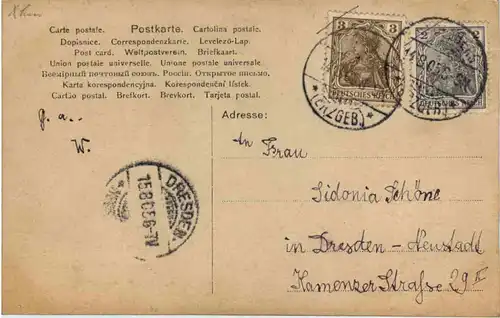 Carte postale. Postkarte. Cartolina postale.
Dopisnice. Correspondenzkarte. Levelező-Lap.
Post card. Weltpostverein. Briefkaart.
Union postale universelle. Unione postale universale.
Всемірный почтовый союзъ. Россія. Открытое письмо.
Karta korespondencyjna. Korespondenční lístek.
Cartão postal. Brefkort. Brevkort. Tarjeta postal.
3 3
DEUTSCHES REICH
2
(ERZGEB.)
g. a..
W.
DRESDEN.
15.8.05.6-7V
Adresse:
An Frau
Sidonia Schöne
in Dresden - Neustadt
Kamenzer Straße 29 II